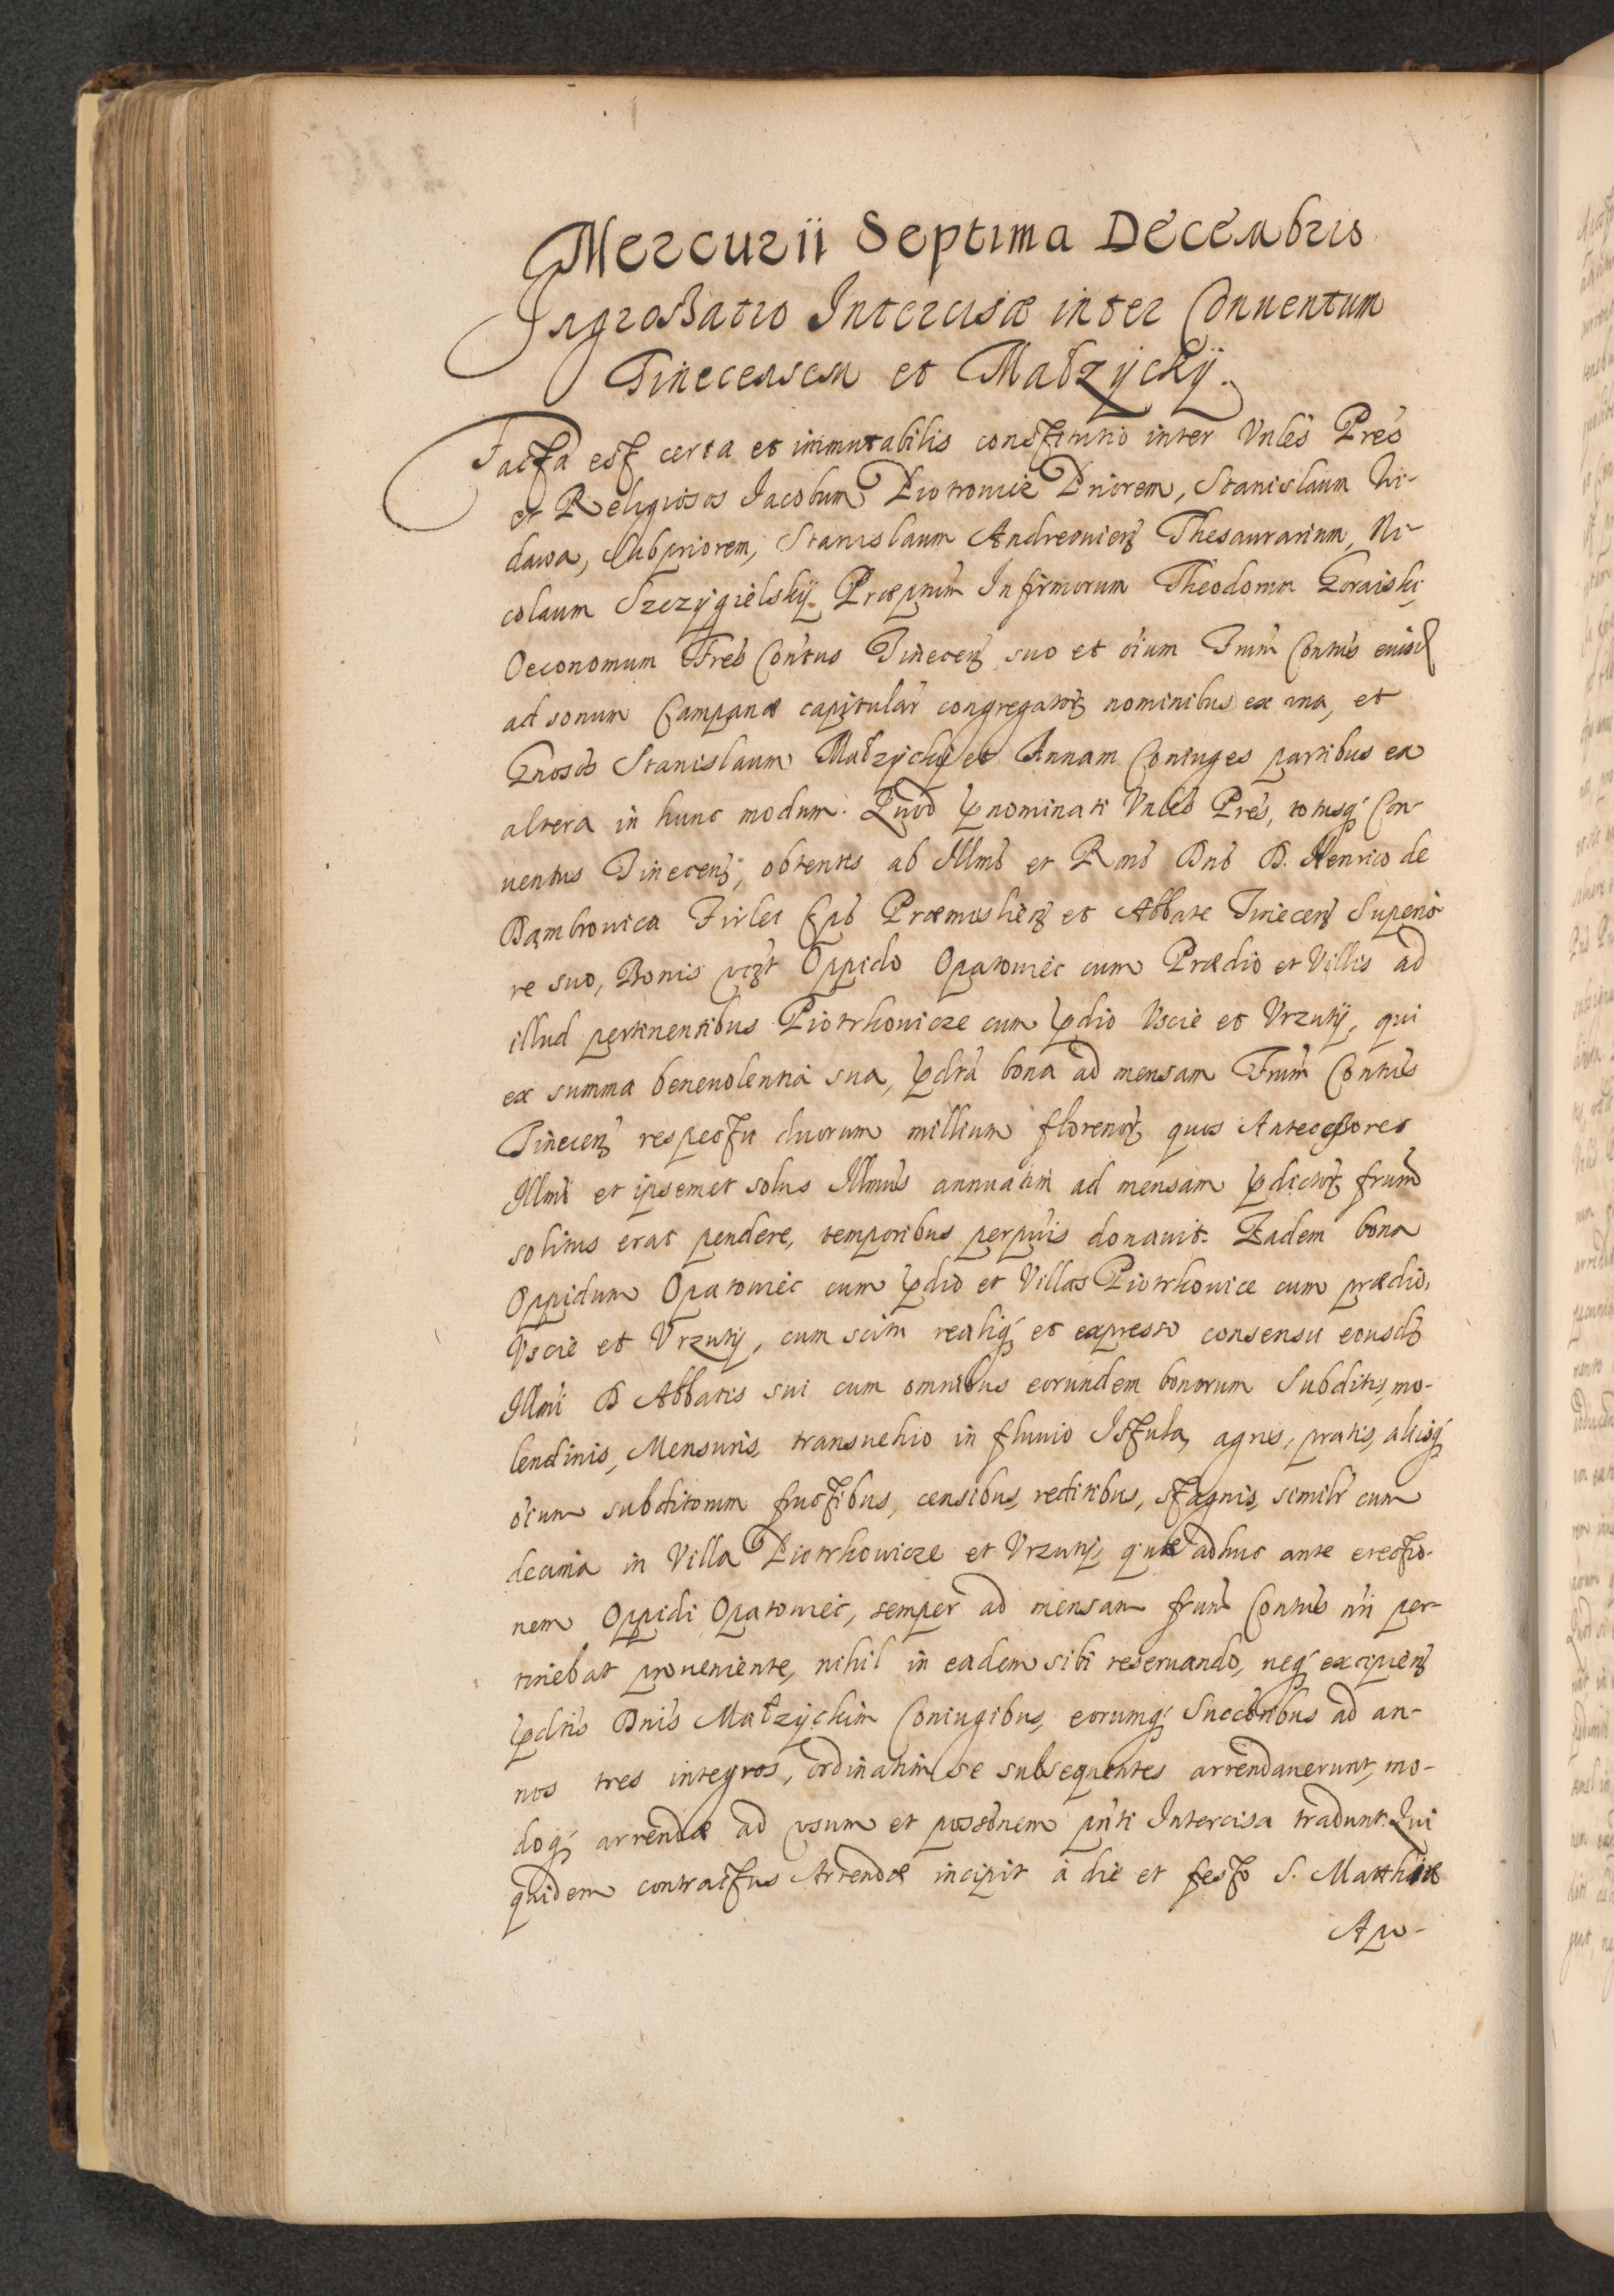 Mercurii Septima Decembris
Ingrossatio Intercisæ inter Conuentum
Tinecensem et Małzÿckÿ.
Facta est certa et immutabilis constitutio inter Vnles Pres
et Religiosos Jacobum Piotrowic Priorem, Stanislaum Ni-
dawa, Subpriorem, Stanislaum Andreouien Thesaurarium, Ni-
colaum Szczÿgielskÿ Præpnum Infirmorum Theodorum Goraiski
Oeconomum Fres Contus Tinecen suo et oium Frum Contus eiusd
ad sonum Campanæ capitular congregator nominibus ex una, et
Gnosos Stanislaum Małzÿckÿ et Annam Coniuges partibus ex
altera in hunc modum. Quod pnominati Vnles Pres, totusq Con-
uentus Tinecen, obtentis ab Illmo et Rmo Dno D. Henrico de
Dąmbrouica Firlei Epo Præmislien et Abbate Tinecen Superio
re suo, Bonis vczt Oppido Opatowiec cum Prædio et Villis ad
illud pertinentibus Piotrkouicze cum pdio Vscie et Vrzuty, qui
ex summa beneuolentia sua, pdta bona ad mensam Frum Contus
Tinecen respectu duorum millium florenor quos Antecessores
Illmi et ipsemet solus Illmus annuatim ad mensam pdictor frum
solitus erat pendere, temporibus perpuis donauit. Eadem bona
Oppidum Opatowiec cum pdio et Villas Piotrkouice cum prædio,
Vscie et Vrzuty, cum scitu realiq et expresso consensu eiusd
Illmi D Abbatis sui cum omnibus eorundem bonorum Subditis, mo-
lendinis, Mensuris, transuehio in fluuio Istula, agris, pratis, aliisq
oium subditorum fructibus, censibus, reditibus, stagnis, similr cum
decima in Villa Piotrkouicze et Vrzuty, quæ adhuc ante erectio-
nem Oppidi Opatowiec, semper ad mensam frum Contus nri per-
tinebat proueniente, nihil in eadem sibi reseruando, neq excipien
pdtis Dnis Małzÿckim Coniugibus, eorumq Succoribus ad an-
nos tres integros, ordinatim se subsequentes arrendauerunt, mo-
doq arrendæ ad vsum et possonem pnti Intercisa tradunt. Qui
quidem contractus Arrendæ incipit à die et festo S. Matthiæ
Apo-